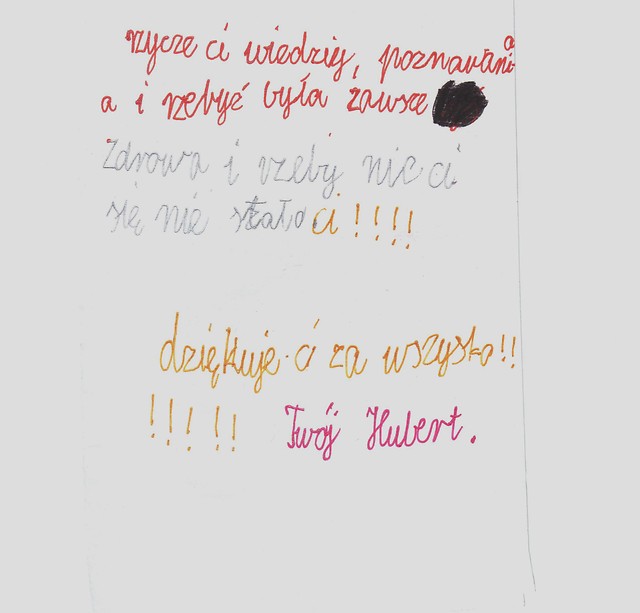 rzycze ci wiedziy, poznavania
a i rzebyć była zawsze
Zdrowa i rzeby nic ci
się nie stało ci!!!!
dziękuje ci za wszysto!!
!!!!! Twój Hubert.